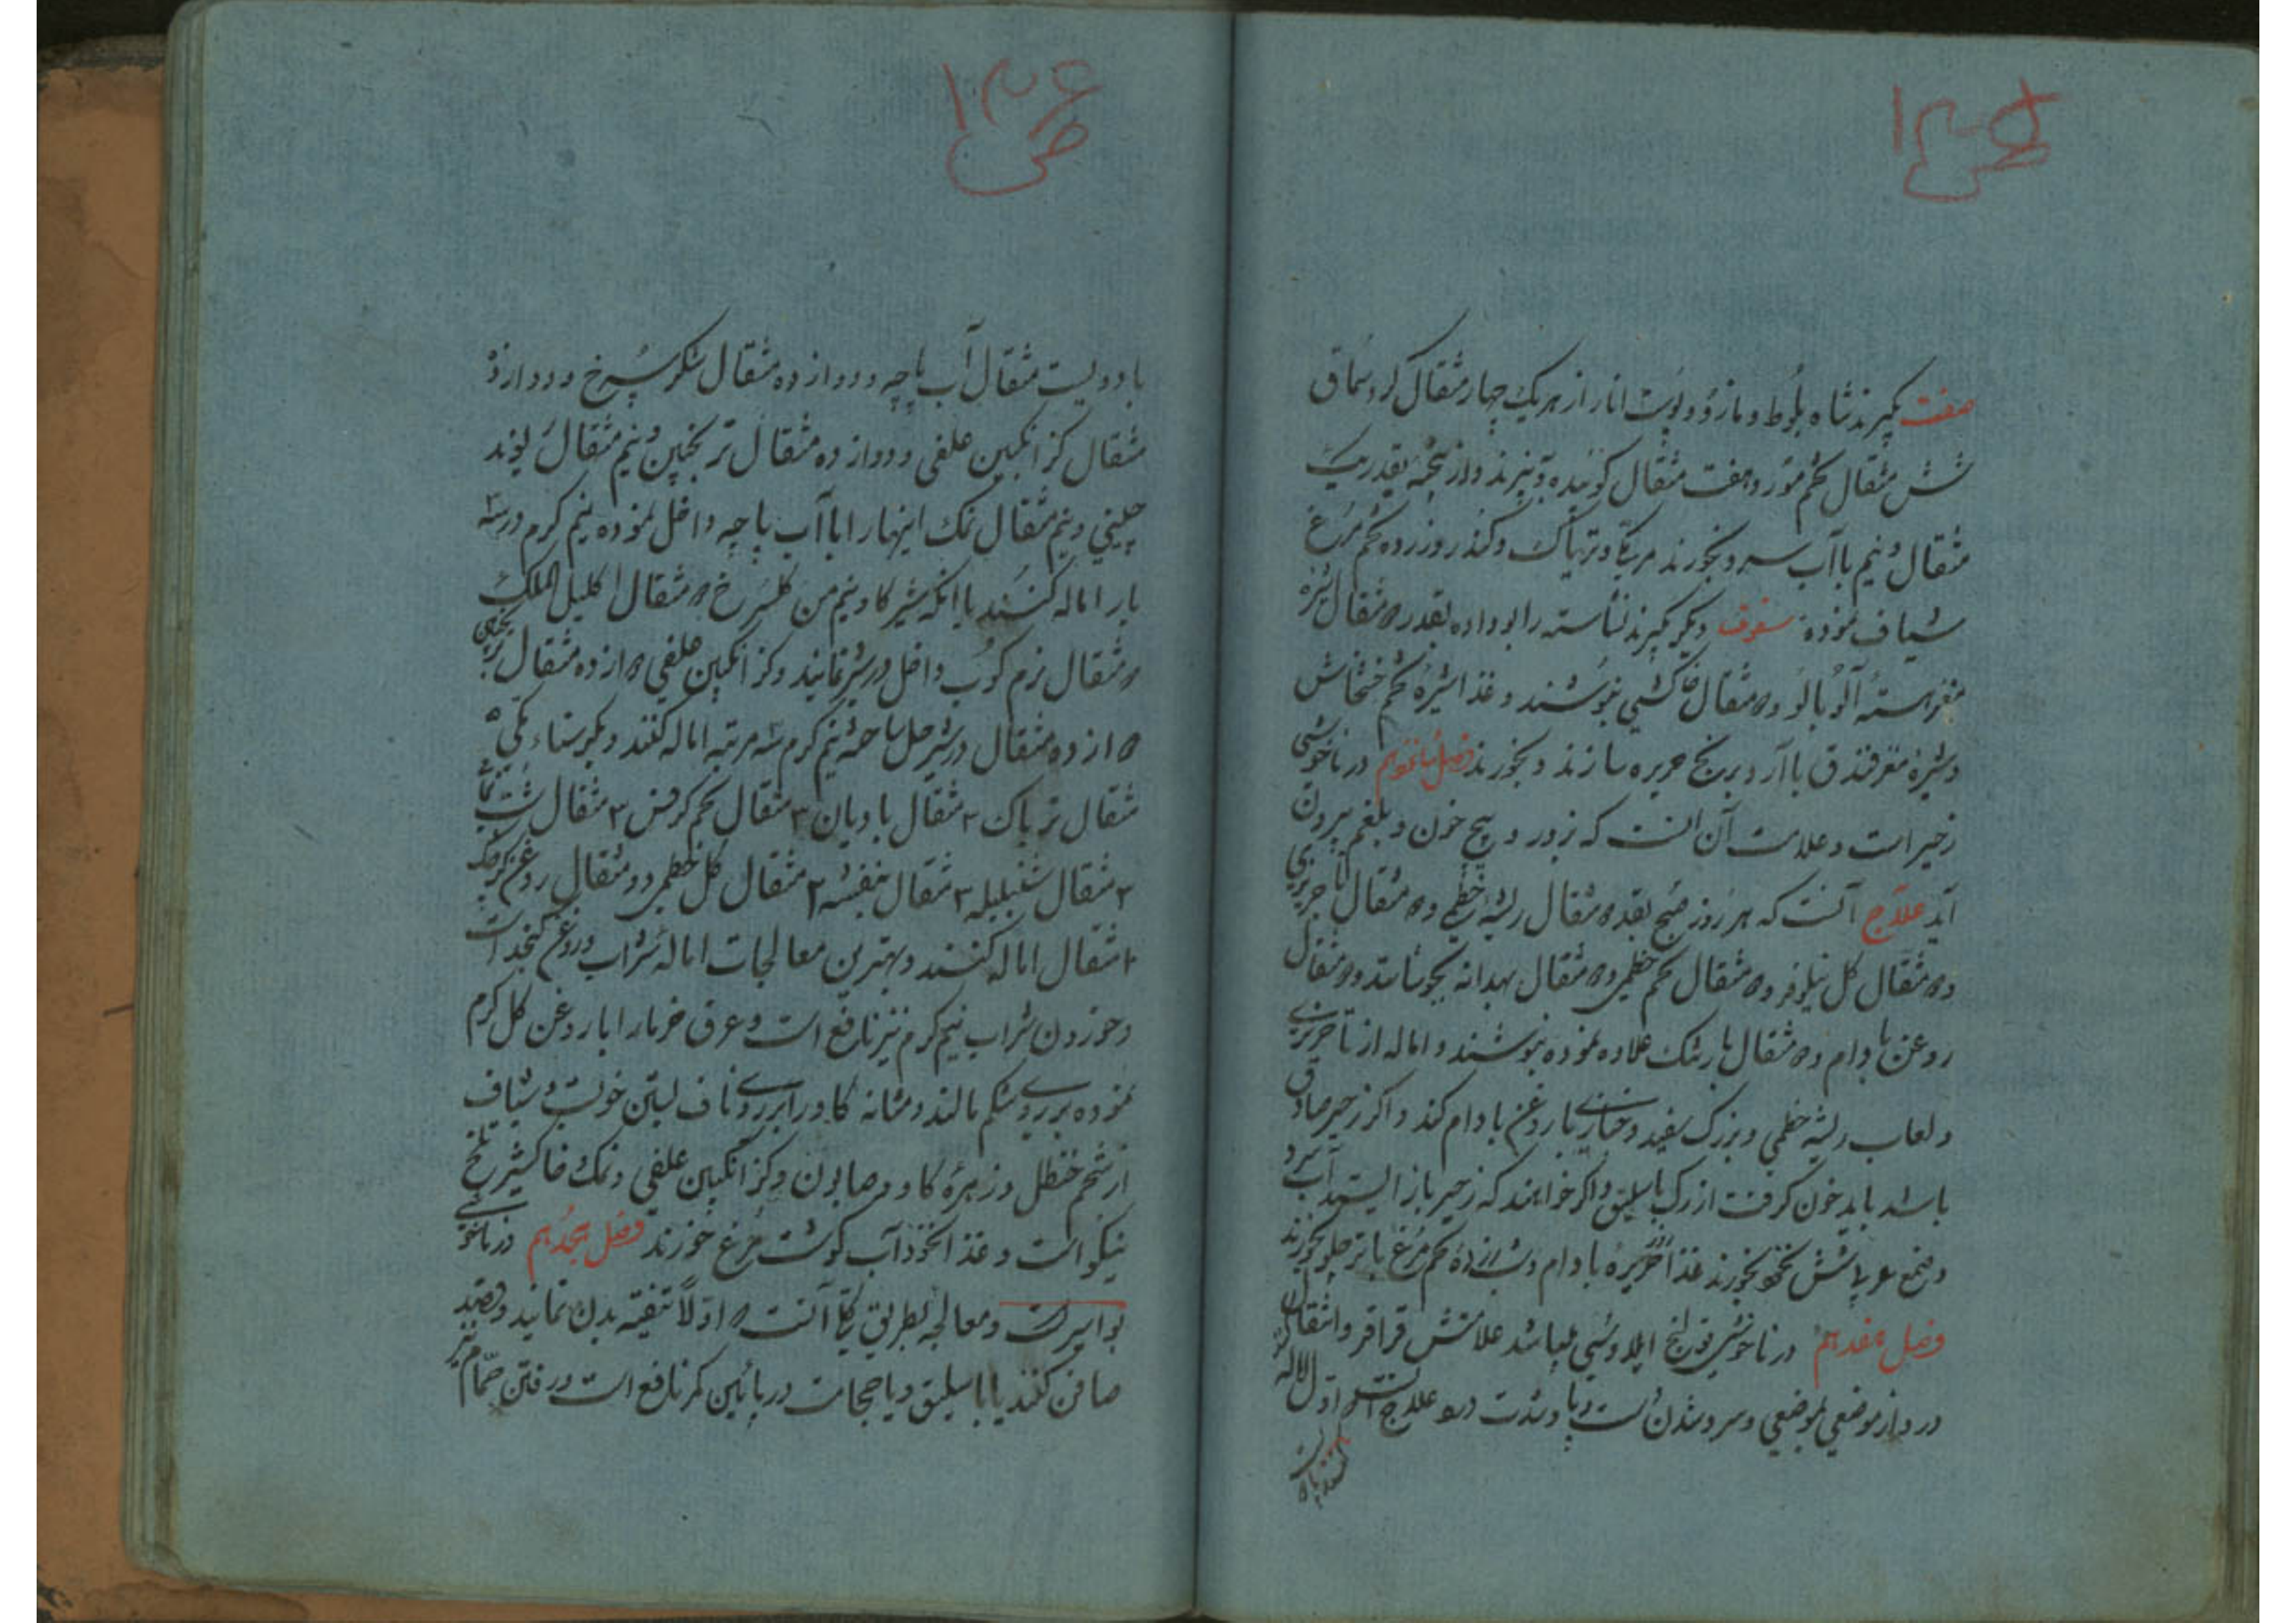 ص ۱۳۵
صفت بگیرند شاه بلوط و مازو و پوست انار از هر یک چهار مثقال گرد سماق
شش مثقال تخم مورد هفت مثقال کوبیده و بپزند و از پخته بقدر یک
مثقال و نیم با آب سرد بخورند و تریاک و کندر و زرده تخم مرغ
شیاف نموده سفوف دیگر بگیرند نشاسته را بو داده بقدر ۵ مثقال شیره
مغز هسته آلوبالو و ۵ مثقال خاکشی بنوشند و غذا شیره تخم خشخاش
و شیره مغز فندق با آرد برنج حریره سازند و بخورند فصل شانزدهم در ناخوشی
زحیر است و علامت آن آنست که بزور و پیچ خون و بلغم بیرون
آید علاج آنست که هر روز صبح بقدر ۵ مثقال ریشه خطمی و ۵ مثقال تاجریزی
و ۵ مثقال گل نیلوفر و ۵ مثقال تخم خطمی و ۵ مثقال بهدانه بجوشانند و ۵ مثقال
روغن بادام و ۵ مثقال بارتنک علاوه نموده بنوشند و اماله از تاجریزی
و لعاب ریشه خطمی و بزرک سفید و خبازی با روغن بادام کند و اگر زحیر صادق
باشد باید خون گرفت از رگ باسلیق و اگر خواهند که زحیر باز ایستد آب سرد
و صمغ عربی بخورند غذا حریره بادام و زرده تخم مرغ با چلو بخورند
فصل هفدهم در ناخوشی قولنج ایلاوسی میباشد علامتش قراقر و انتقال
درد از موضعی بموضعی و سرد شدن دست و پا و شدت درد علاج آنست اول اماله
کنند
ص ۱۳۶
با دویست مثقال آب پاچه و دوازده مثقال شکر سرخ و دوازده
مثقال گز انگبین علفی و دوازده مثقال ترنجبین و نیم مثقال ریوند
چینی و نیم مثقال نمک اینها را با آب پاچه داخل نموده نیم گرم در سه
بار اماله کنند یا آنکه شیر گاو نیم من گلسرخ ۵ مثقال اکلیل الملک
۵ مثقال نرم کوب داخل در شیر نمایند و گز انگبین علفی ۵ از ده مثقال ترنجبین
۵ از ده مثقال در شیر حل ساخته نیم گرم سه مرتبه اماله کنند و بگیر سناء مکی ۵
مثقال تریاک ۳ مثقال بادیان ۳ مثقال تخم کرفس ۳ مثقال شبت
۳ مثقال شنبلیله ۳ مثقال بنفشه ۳ مثقال گل خطمی دو مثقال روغن کرچک
۱۰ مثقال اماله کنند و بهترین معالجات اماله شراب و روغن کنجد است
و خوردن شراب نیم گرم نیز نافع است و عرق خرما را با روغن گل گرم
نموده بر روی شکم مالند و مثانه گاو را بر روی ناف بستن خوبست و شیاف
از شحم حنظل و زهره گاو و صابون و گز انگبین علفی و نمک خاکشیر تلخ
نیکو است و غذا نخود آب گوشت مرغ خورند فصل هجدهم در ناخوشی
بواسیر است و معالجه بطریق آنست اولاً تنقیه بدن نمایند و فصد
صافن کنند یا باسلیق و یا حجامت در پائین کمر نافع است و رفتن حمام نیز